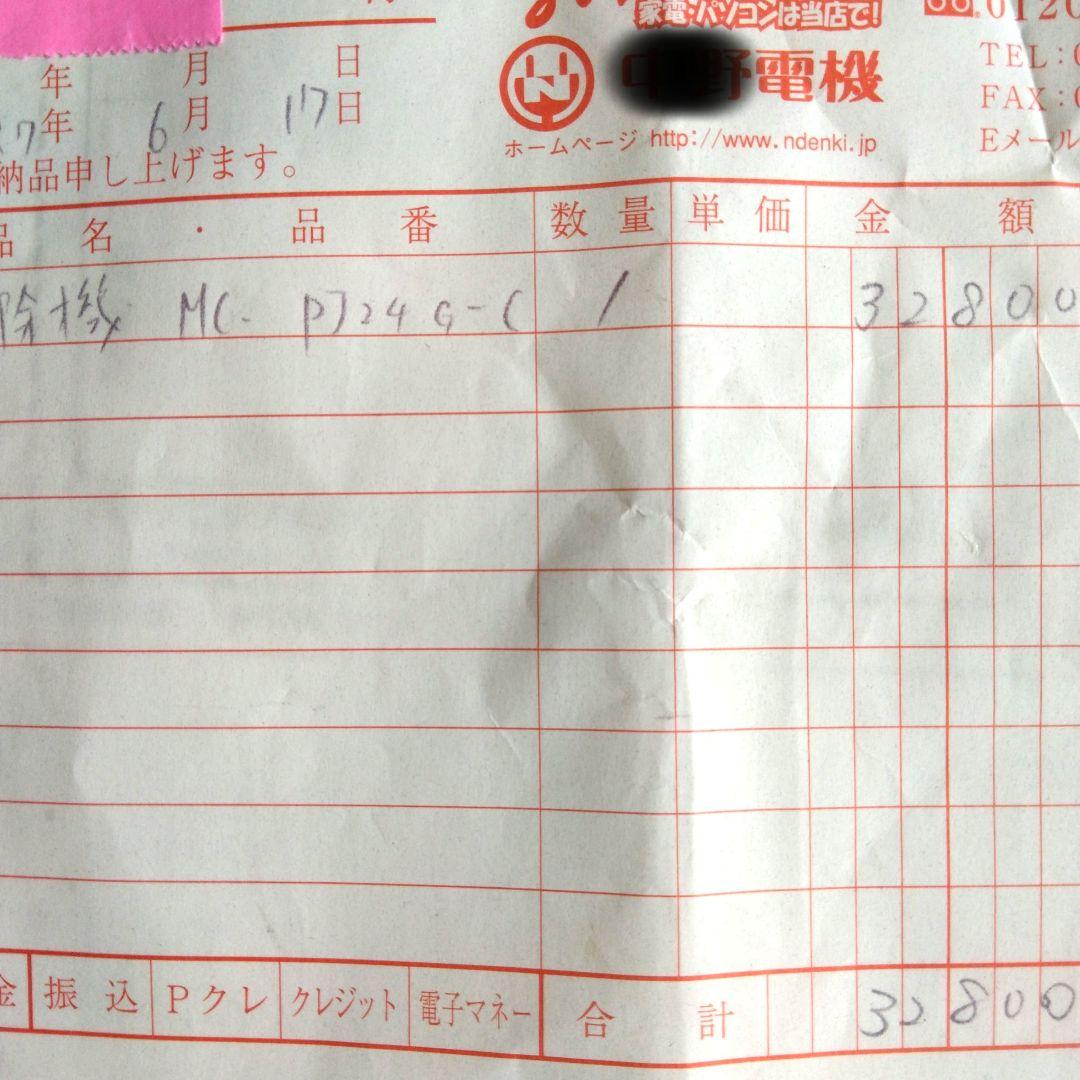 家電・パソコンは当店で!
0120
野電機
TEL:0
FAX:0
ホームページ http://www.ndenki.jp
Eメール
年 月 日
27年 6月 17日
納品申し上げます。
品 名 ・ 品 番 数 量 単 価 金 額
除機 MC-PJ24G-C 1 32800
金 振 込 Pクレ クレジット 電子マネー 合 計 32800